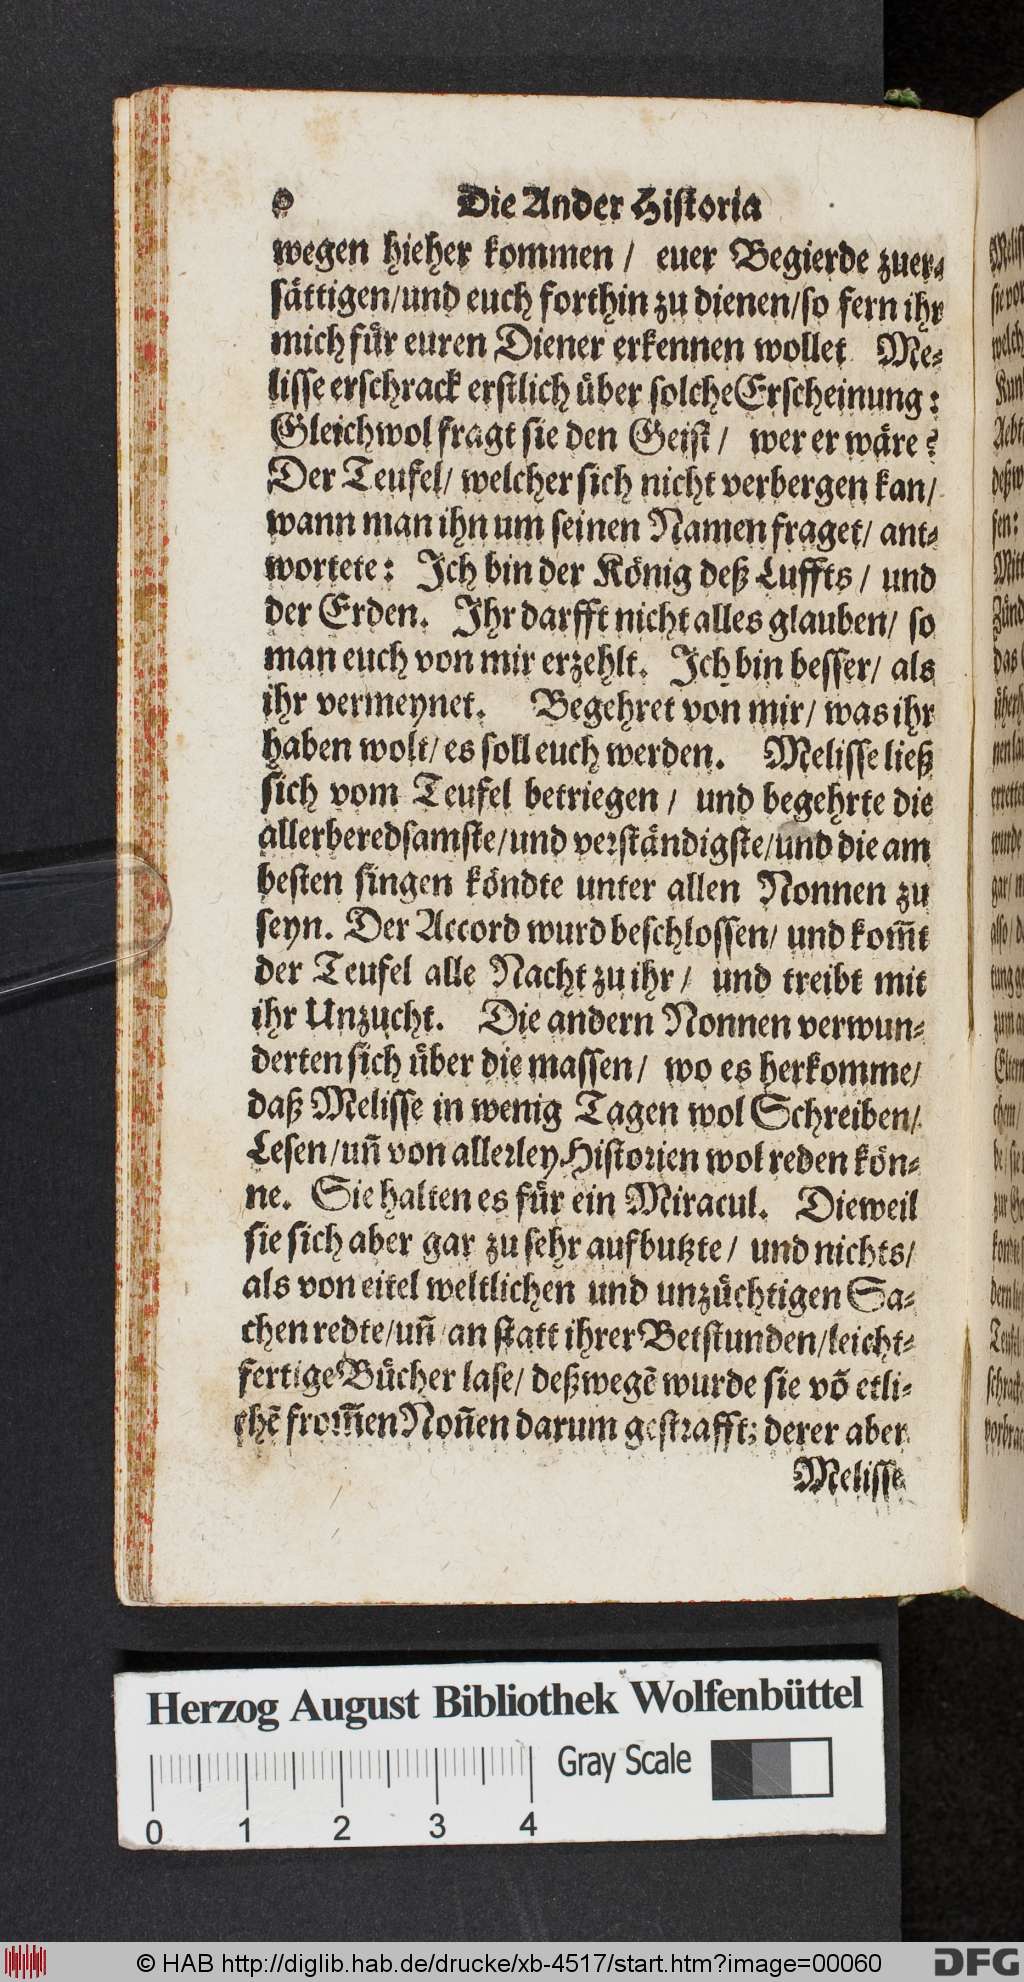 Die Ander Histoꝛia
wegen hieher kommen / euer Begierde zuer⸗
sättigen/und euch forthin zu dienen/so fern ihr
mich für euren Diener erkennen wollet Me⸗
lisse erschrack erstlich über solche Erscheinung:
Gleichwol fragt sie den Geist / wer er wäre?
Der Teufel/ welcher sich nicht verbergen kan/
wann man ihn um seinen Namen fraget/ ant⸗
wortete: Ich bin der König deß Luffts / und
der Erden. Ihr darfft nicht alles glauben/ so
man euch von mir erzehlt. Ich bin besser/ als
ihr vermeynet. Begehret von mir/ was ihr
haben wolt/ es soll euch werden. Melisse ließ
sich vom Teufel betriegen / und begehrte die
allerberedsamste/und veꝛständigste/und die am
besten singen köndte unter allen Nonnen zu
seyn. Der Accord wurd beschlossen/ und kom̃t
der Teufel alle Nacht zu ihr / und treibt mit
ihr Unzucht. Die andern Nonnen verwun⸗
derten sich über die massen / wo es herkomme/
daß Melisse in wenig Tagen wol Schreiben/
Lesen/uñ von alleꝛley Histoꝛien wol reden kön⸗
ne. Sie halten es für ein Miracul. Dieweil
sie sich aber gar zu sehr aufbutzte / und nichts/
als von eitel weltlichen und unzüchtigen Sa⸗
chen redte/uñ an statt ihrer Betstunden/leicht⸗
fertige Bücher lase/ deßwegẽ wurde sie võ etli⸗
chẽ from̃en Noñen darum gestꝛafft; derer aber
Melisse
Herzog August Bibliothek Wolfenbüttel
Gray Scale
0 1 2 3 4
© HAB http://diglib.hab.de/drucke/xb-4517/start.htm?image=00060
DFG